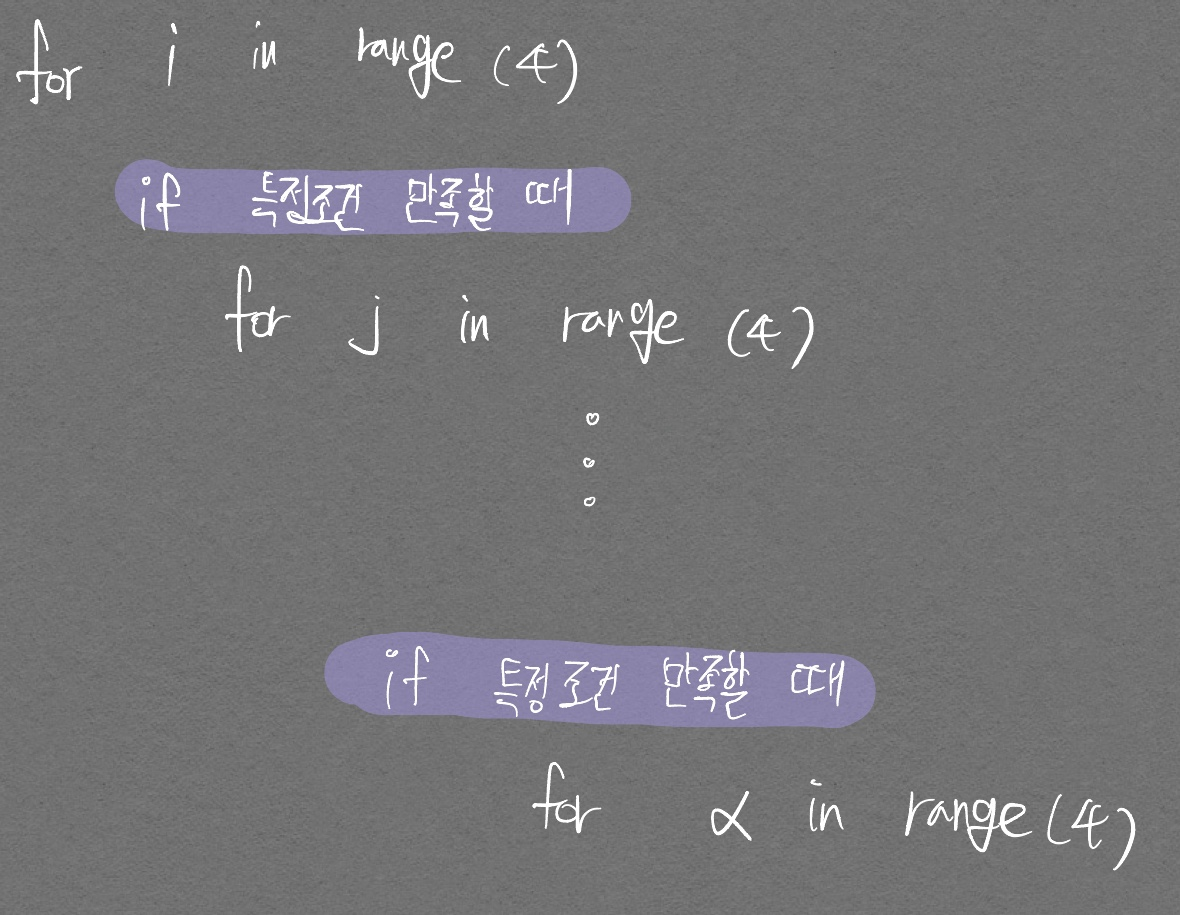 for i in range (4)
if 특정조건 만족할 때
for j in range (4)
if 특정조건 만족할 때
for α in range (4)